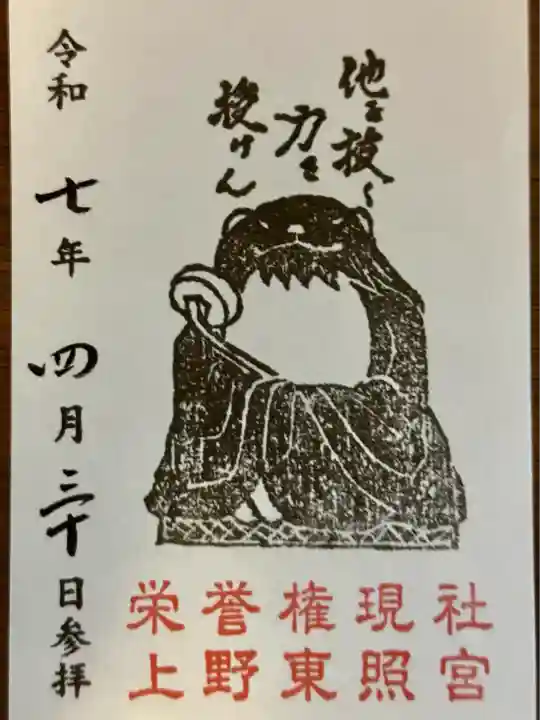 他を抜く
力を
授けん
栄誉権現社
上野東照宮
令和 七年 四月三十日参拝